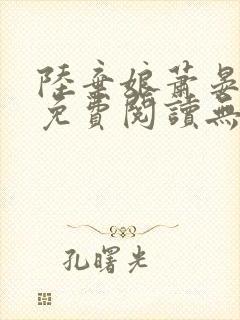 陸棄娘蕭晏
免費閱讀無
孔曙光